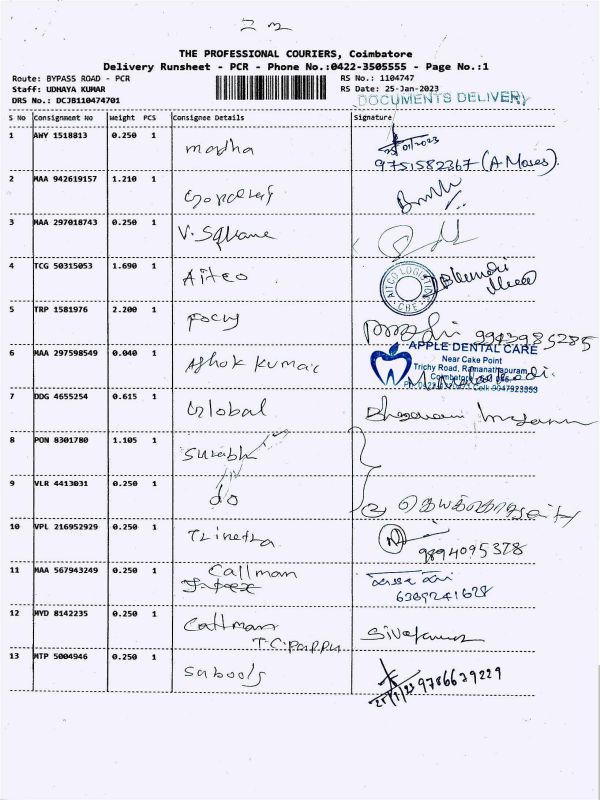 THE PROFESSIONAL COURIERS, Coimbatore
Delivery Runsheet - PCR - Phone No.:0422-3505555 - Page No.:1
Route: BYPASS ROAD - PCR
Staff: UDHAYA KUMAR
DRS No.: DCJB110474701
RS No.: 1104747
RS Date: 25-Jan-2023
DOCUMENTS DELIVERY
S No Consignment No Weight PCS Consignee Details Signature
1 AWY 1518813 0.250 1 madha 25/01/2023
9751582367 (A Moses).
2 MAA 942619157 1.210 1
3 MAA 297018743 0.250 1 V. Square
4 TCG 50315053 1.690 1 Aitco
AITCO LOGISTICS CBE
5 TRP 1581976 2.200 1 focus 9943985285
6 MAA 297598549 0.040 1 Ashok Kumar
APPLE DENTAL CARE
Near Cake Point
Trichy Road, Ramanathapuram,
Coimbatore
7 DDG 4655254 0.615 1 Global
8 PON 8301780 1.105 1 Surabhi
9 VLR 4413031 0.250 1 do
10 VPL 216952929 0.250 1 Trinetra 9894095378
11 MAA 567943249 0.250 1 Callman
6369241628
12 MYD 8142235 0.250 1 Callman
T.C. Pappu Sivakumar
13 MTP 5004946 0.250 1 Sabools 25/1/23 9786639229